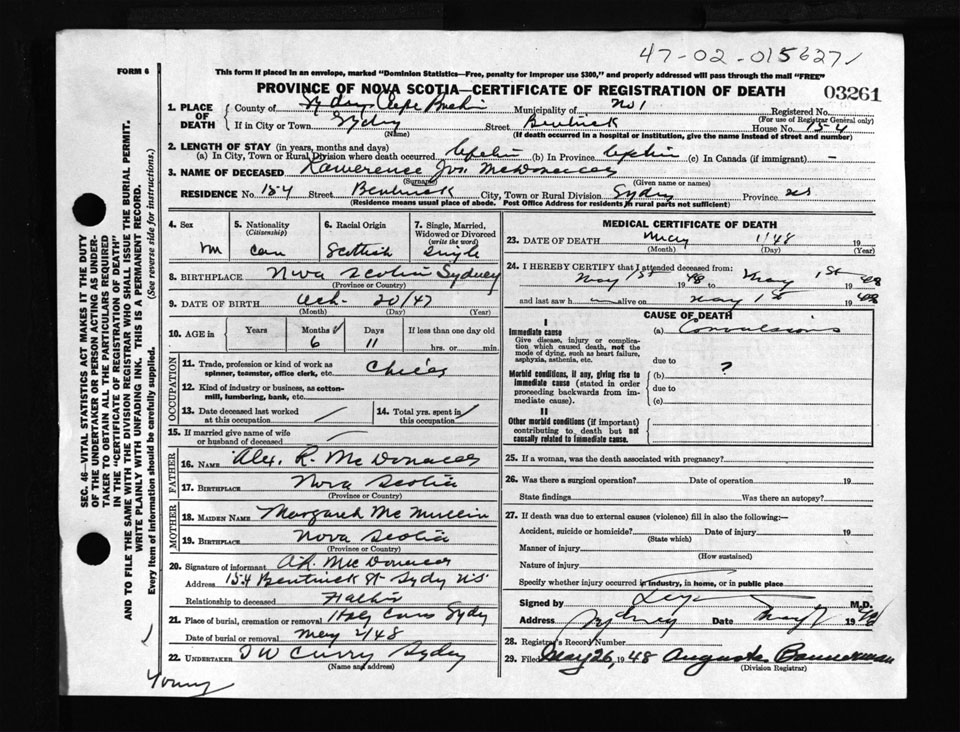 47-02-015627
FORM 6
This form if placed in an envelope, marked "Dominion Statistics—Free, penalty for improper use $300," and properly addressed will pass through the mail "FREE"
PROVINCE OF NOVA SCOTIA—CERTIFICATE OF REGISTRATION OF DEATH
03261
1. PLACE OF DEATH
County of Sydney Cape Breton Municipality of No 1 Registered No.
(For use of Registrar General only)
If in City or Town Sydney Street Bentinck House No. 154
(Name) (If death occurred in a hospital or institution, give the name instead of street and number)
2. LENGTH OF STAY (in years, months and days)
(a) In City, Town or Rural Division where death occurred (b) In Province (c) In Canada (if immigrant) —
3. NAME OF DECEASED Lawerence Jos. McDonald
(Surname) (Given name or names)
RESIDENCE No. 154 Street Bentinck City, Town or Rural Division Sydney Province NS
(Residence means usual place of abode. Post Office Address for residents in rural parts not sufficient)
4. Sex
M
5. Nationality (Citizenship)
Can
6. Racial Origin
Scottish
7. Single, Married, Widowed or Divorced (write the word)
Single
8. BIRTHPLACE Nova Scotia Sydney
(Province or Country)
9. DATE OF BIRTH Oct. 20/47
(Month) (Day) (Year)
10. AGE in Years Months Days If less than one day old
6 11 hrs. or min.
OCCUPATION
11. Trade, profession or kind of work as spinner, teamster, office clerk, etc. Child
12. Kind of industry or business, as cotton-mill, lumbering, bank, etc.
13. Date deceased last worked at this occupation
14. Total yrs. spent in this occupation
15. If married give name of wife or husband of deceased
FATHER
16. NAME Alex. R. McDonald
17. BIRTHPLACE Nova Scotia
(Province or Country)
MOTHER
18. MAIDEN NAME Margaret McMullin
19. BIRTHPLACE Nova Scotia
(Province or Country)
20. Signature of informant A.R. McDonald
Address 154 Bentinck St Sydney NS
Relationship to deceased Father
21. Place of burial, cremation or removal Holy Cross Sydney
Date of burial or removal May 2/48
22. UNDERTAKER T W Curry Sydney
(Name and address)
Young
MEDICAL CERTIFICATE OF DEATH
23. DATE OF DEATH May 1/48 19
(Month) (Day) (Year)
24. I HEREBY CERTIFY that I attended deceased from:
May 1st 1948 to May 1st 1948
and last saw h alive on May 1st 1948
CAUSE OF DEATH
I
Immediate cause (a) Convulsions
Give disease, injury or complication which caused death, not the mode of dying, such as heart failure, asphyxia, asthenia, etc.
due to
Morbid conditions, if any, giving rise to immediate cause (stated in order proceeding backwards from immediate cause).
(b) ?
due to
(c)
II
Other morbid conditions (if important) contributing to death but not causally related to immediate cause.
25. If a woman, was the death associated with pregnancy?
26. Was there a surgical operation? Date of operation 19
State findings Was there an autopsy?
27. If death was due to external causes (violence) fill in also the following:—
Accident, suicide or homicide? Date of injury 19
(State which)
Manner of injury
(How sustained)
Nature of injury
Specify whether injury occurred in industry, in home, or in public place
Signed by M.D.
Address Sydney Date May 1948
28. Registrar's Record Number
29. Filed May 26, 1948 Augusta Bannerman
(Division Registrar)
SEC. 46—VITAL STATISTICS ACT MAKES IT THE DUTY OF THE UNDERTAKER OR PERSON ACTING AS UNDERTAKER TO OBTAIN ALL THE PARTICULARS REQUIRED IN THE "CERTIFICATE OF REGISTRATION OF DEATH" AND TO FILE THE SAME WITH THE DIVISION REGISTRAR WHO SHALL ISSUE THE BURIAL PERMIT.
WRITE PLAINLY WITH UNFADING INK. THIS IS A PERMANENT RECORD.
Every item of information should be carefully supplied. (See reverse side for instructions.)